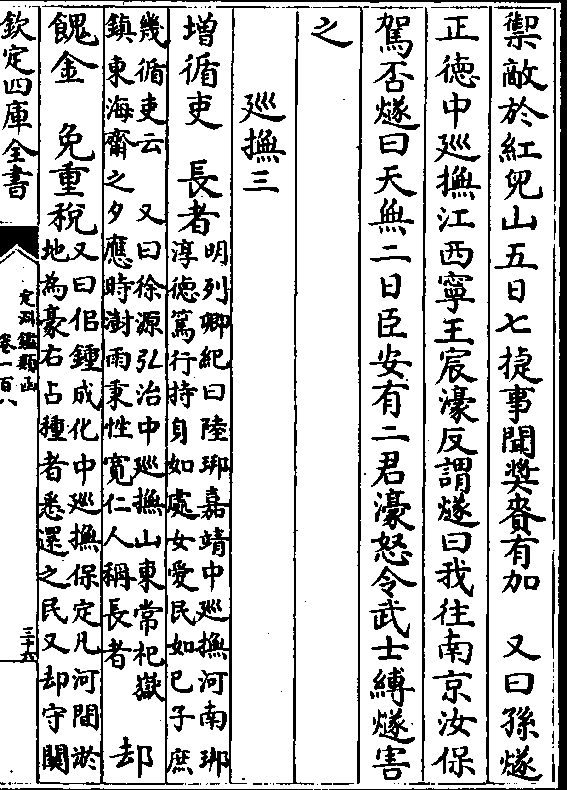 禦敵於紅兒山五日七捷事聞奬賚有加　又曰孫燧
正德中廵撫江西寧王宸濠反謂燧曰我往南京汝保
駕否燧曰天無二日臣安有二君濠怒令武士縛燧害
之
廵撫三
增循吏　長者
明列卿紀曰陸琊嘉靖中廵撫河南琊
淳德篤行持身如處女愛民如已子庶
幾循吏云　又曰徐源弘治中廵撫山東常祀嶽
鎮東海齋之夕應時澍雨秉性寛仁人稱長者
却
餽金　免重稅
又曰侣鍾成化中廵撫保定凡河間淤
地為豪右占種者悉還之民又却守關
欽定四庫全書
定淵鑑類函
卷一百八
三十六